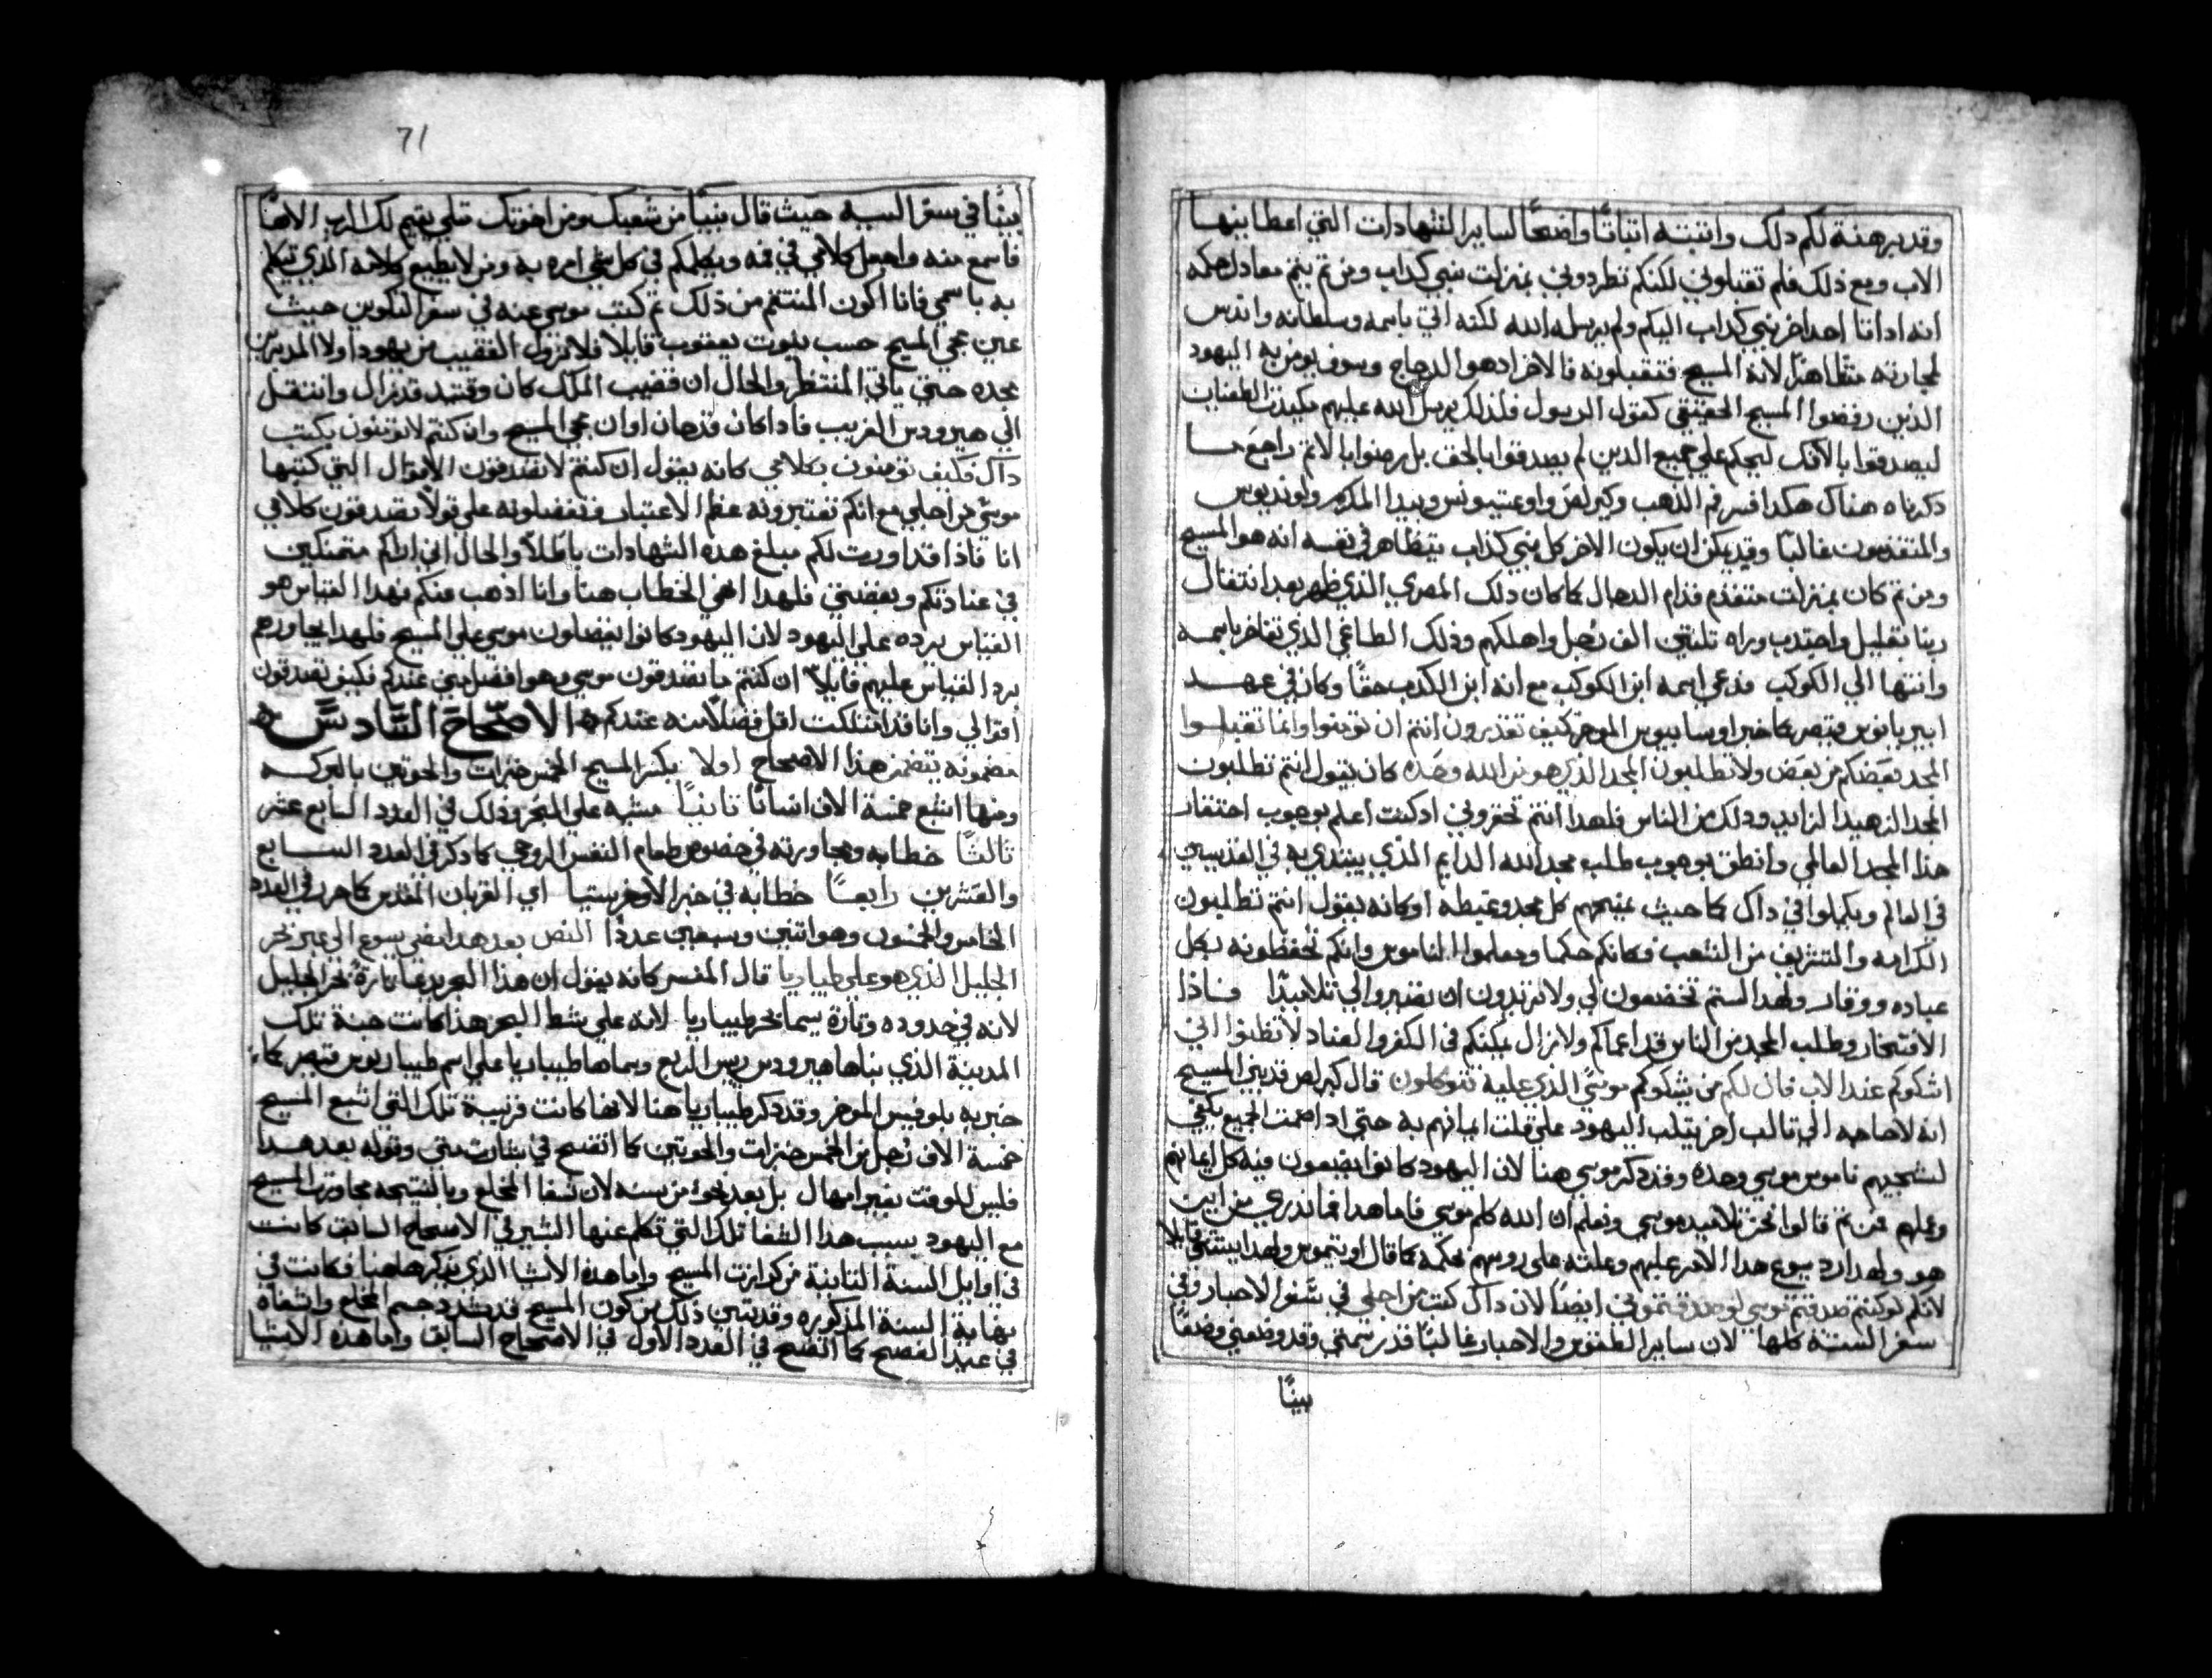 وقد برهنة لكم دلك واتبته اتباتًا واضحًا لساير الشهادات التي اعطا بنها
الاب ومع ذلك فلم تقبلوني لكنكم تطردوني بمنزلت نبي كداب ومن تم يتم معادل حكمه
انه اداتا احد اخر نبي كداب اليكم ولم يرسله الله لكنه اتي باسمه وسلطانه واندس
لمجاربته متظاهرًا لانه المسيح فتقبلونه فالاخر اد هو الدجاج وسوف يومن به اليهود
الذين رفضوا المسيح الحقيقي كقول الرسول فلذلك يرسل الله عليهم مكيدة الطغيان
ليصدقوا بالافك ليحكم علي جميع الدين لم يصدقوا بالحق بل رضوا بالاتم راجع ما
ذكرناه هناك هكدا فسر فم الذهب وكيرلص واوغتيبونس وبيدا المكرم ولونديوس
والمتقدمون غالبًا وقد يمكن ان يكون الاخر كل نبي كذاب يتظاهر في نفسه انه هو المسيح
ومن تم كان بمنزلت متقدم قدام الدجال كما كان دلك المصري الذي ظهر بعد انتقال
ربنا بقليل واجتدب وراه تلتين الف رجل واهلكهم وذلك الطاغي الذي تفاخر باسمه
وانتها الي الكوكب فدعى اسمه ابن الكوكب مع انه ابن الكدب حقًا وكان في عهد
ادريانوس قيصر كما خبر اوسابيوس المورخ كيف تقدرون انتم ان تومنوا وانما تقبلوا
المجد بعضكم من بعض ولا تطلبون المجد الذي هو من الله وحده كان يقول انتم تطلبون
المجد الزهيد الزايد ودلك من الناس فلهدا انتم تحقروني اد كنت اعلم بوجوب احتقار
هذا المجد العالمي وانطق بوجوب طلب مجد الله الدايم الذي يبتدي به في القديسين
في العالم ويكملوا في داك كما حيث يمنحهم كل مجد وغبطه او كانه يقول انتم تطلبون
الكرامه والتشريف من الشعب فكانكم حكما ومعلموا الناموس وانكم تحفظونه بكل
عباده ووقار ولهدا لستم تخضعون لي ولا تريدون ان تصيروا لي تلاميدًا فاذا
الافتخار وطلب المجد من الناس قد اعماكم ولا زال يمكنكم في الكفر والعناد لا تظنوا اني
اشكوكم عند الاب فان لكم من يشكوكم موسى الذي عليه تتوكلون قال كيرلص قديني المسيح
انه لاحاجه الي تالب اخر يتلب اليهود علي قلت ايمانهم به حتي اد اصمت الجميع يكفي
لشجبهم ناموس موسي وحده وقد دكر موسي هنا لان اليهود كانوا يضعون فيه كل ايمانهم
وعملهم فمن تم قالوا نحن تلاميد موسي ونعلم ان الله كلم موسي فاما هدا فما ندري من اين
هو ولهدا رد يسوع هدا الامر عليهم وعلته على روسهم بحكمه كما قال اوتيموس ولهدا يستتلي قايلا
لانكم لو كنتم صدقتم موسي لو صدقتموني ايضًا لان داك كتب من اجلي في سفر الاحبار وفي
سفر السنة كلها لان ساير الطقوس والاحبار غالبًا قد رسمني وقد وضعني وصفًا
بينًا
71
بينًا في سفر التنيه حيث قال نبيًا من شعبك ومن اخوتك متلي يقيم لك الرب الاهنا
فاسمع منه واجعل كلامي في فمه ويكلمكم في كل شي امره به ومن لا يطيع كلامه الذي تيكلم
به باسمي فانا اكون المنتقم من ذلك تم كتب موسي عنه في سفر التكوين حيث
عين مجي المسيح حسب بنوت يعقوب قايلا فلا يزول القضيب من يهودا ولا المدبر من
نجده حتي ياتي المنتظر والحال ان قضيب الملك كان وقتيد قد زال وانتقل
الي هيرودس الغريب فادا كان قد حان اوان مجي المسيح وان كنتم لا تومنون بكتب
داك فكيف تومنون بكلامي كانه يقول ان كنتم لا تصدقون الاقوال التي كتبها
موسى من اجلي مع انكم تعتبرونه عظم الاعتبار وتفضلونه علي تولا تصدقون كلامي
انا فاذا قد اوريت لكم مبلغ هذه الشهادات باطلاً والحال اني اراكم متمتكين
في عنادتكم وبغضتي فلهدا انهي الخطاب هنا وانا اذهب منكم فهدا القياس هو
القياس يرده علي اليهود لان اليهود كانوا يفضلون موسي علي المسيح فلهدا يجاورهم
برد القياس عليهم قايلاً ان كنتم ما تصدقون موسي وهو افضل مني عندكم فكيف تصدقون
اقوالي وانا قد امتلكت اقل فضلاً منه عندكم الاصحاح السادس
مضمونه يتضمن هدا الاصحاح اولا يكثر المسيح الخمس خبزات والحوتين بالبركه
ومنها اشبع خمسة الاف انسانًا تانيًا مشيه علي البحر ودلك في العدد السابع عشر
تالتًا خطابه ومجاورته في خصوص طعام النفس الروحي كما دكر في العدد السابع
والعشرين رابعًا خطابه في خبز الاوخرستيا اي القربان المقدس كما حرر في العدد
الخامس والخمسون وهو اتنين وسبعين عددًا النص بعد هدا مضي يسوع الي عبر بحر
الجليل الذي هو على طياريا قال المفسر كانه يقول ان هدا البحر يدعا تارةً بحر الجليل
لانه في حدوده وتارة يسما بحر طيباريا لانه علي شط البحر هذا كانت مبنية تلك
المدينة الذي بناها هيرودس ريس الربع وسماها طيباريا علي اسم طيباريوس قيصر كما
خبر به يلوفيس المورخ وقد دكر طيباريا هنا لانها كانت قريبة تلك التي اشبع المسيح
خمسة الاف رجل من الخمس خبزات والحوتين كما اتضح في بشارت متي وقوله بعد هدا
فليس للوقت بغير امهال بل بعد نحو من سنه لان شفا المخلع وبالنتيجه مجاورت المسيح
مع اليهود بسبب هدا الشفا تلك التي تكلم عنها البشير في الاصحاح السابق كانت
في اوايل السنة التانية من كرازت المسيح واما هده الاشيا الذي يدكرها هنا فكانت في
نهاية السنة المذكوره وقد يتبين ذلك من كون المسيح قد شدد جسم المخلع واشفاه
في عيد الفصح كما اتضح في العدد الاول في الاصحاح السابق واما هذه الاشيا